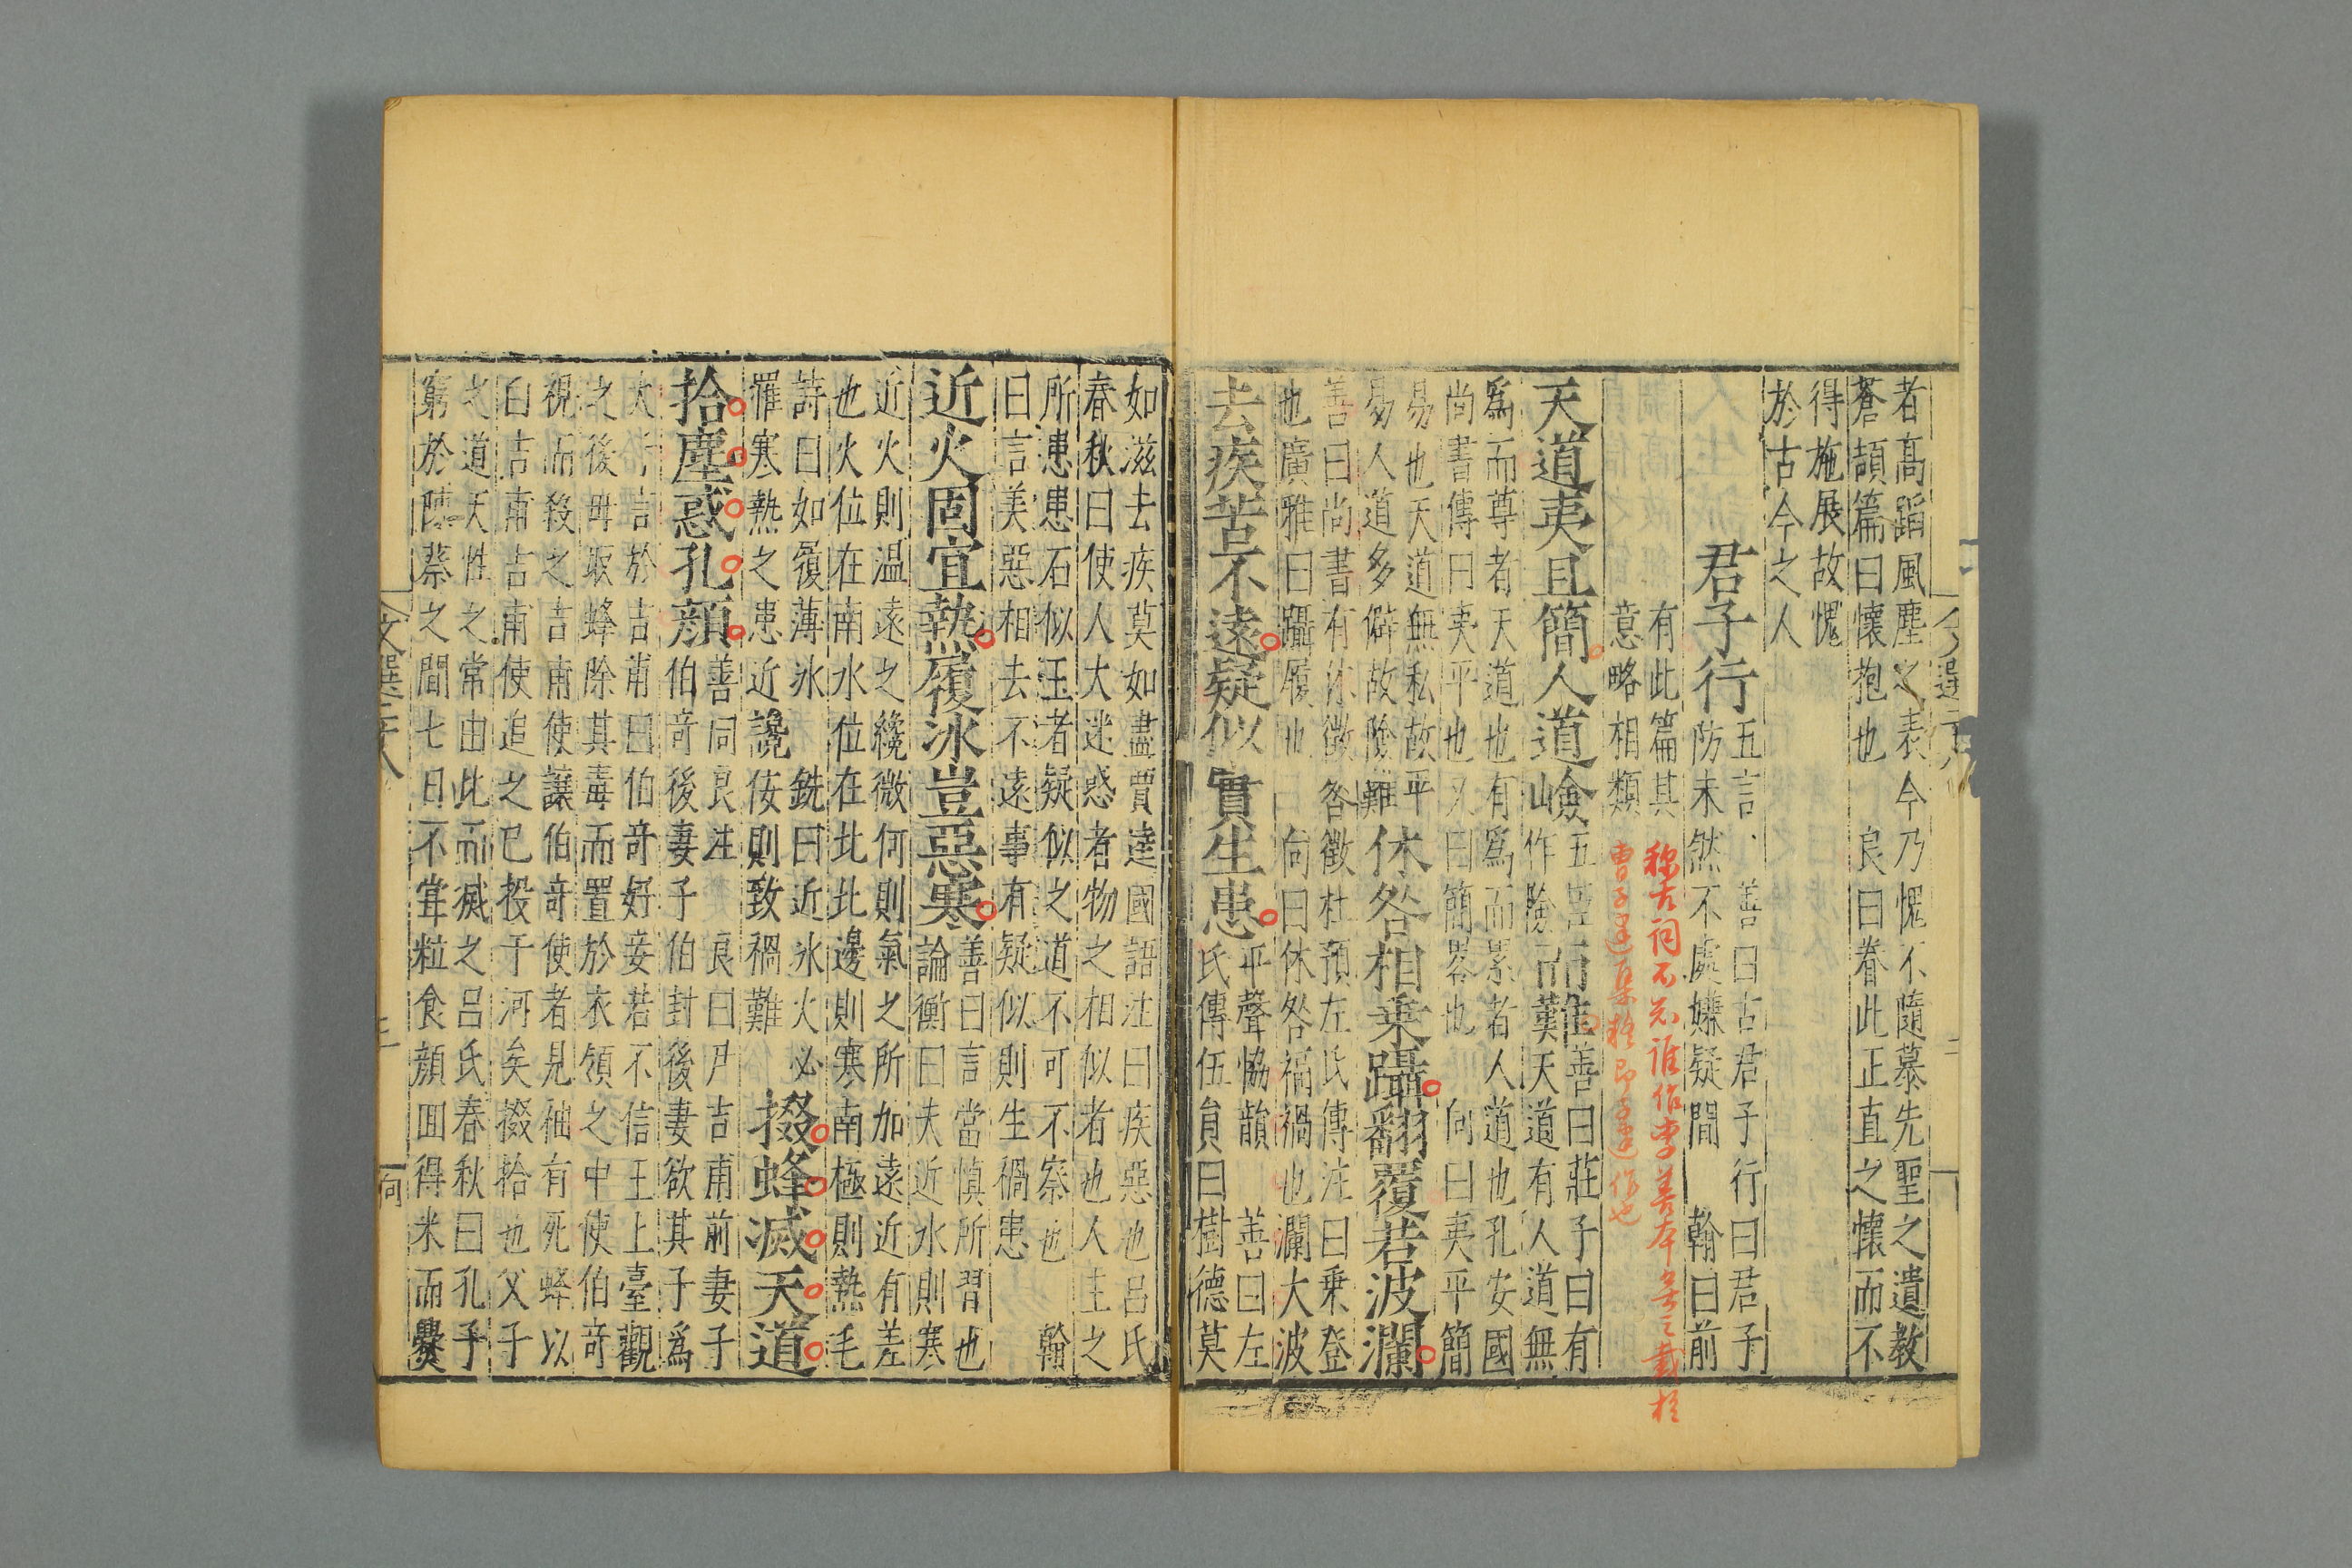 者高蹈風塵之表今乃愧不隨慕先聖之遺教
蒼頡篇曰懷抱也　良曰眷此正直之懷而不
得施展故愧
於古今之人
君子行
五言　善曰古君子行曰君子
防未然不處嫌疑間　翰曰前
有此篇其
意略相類
天道夷且簡人道嶮
五臣
作險
而難
善曰莊子曰有
天道有人道無
爲而尊者天道也有爲而累者人道也孔安國
尚書傳曰夷平也又曰簡畧也　向曰夷平簡
易也天道無私故平
易人道多僻故險難
休咎相乗躡翻覆若波瀾
善曰尚書有休徵咎徵杜預左氏傳注曰乗登
也廣雅曰躡履也　向曰休咎福禍也瀾大波
去疾苦不遠疑似實生患
平聲恊韻　善曰左
氏傳伍貟曰樹德莫
如滋去疾莫如盡賈逵國語注曰疾惡也吕氏
春秋曰使人大迷惑者物之相似者也人主之
所患患石似玉者疑似之道不可不察也　翰
曰言美惡相去不遠事有疑似則生禍患
近火固宜熱履冰豈惡寒
善曰言當慎所習也
論衡曰夫近水則寒
近火則温遠之纔微何則氣之所加遠近有差
也火位在南水位在北北邊則寒南極則熱毛
詩曰如履薄氷　銑曰近氷火必
罹寒熱之患近讒佞則致禍難
掇蜂滅天道
拾塵惑孔顔
善同良注　良曰尹吉甫前妻子
伯竒後妻子伯封後妻欲其子爲
太子言於吉甫曰伯竒好妾若不信王上臺觀
之後母取蜂除其毒而置於衣領之中使伯竒
視而殺之吉甫使讓伯竒使者見袖有死蜂以
白吉甫吉甫使追之巳投于河矣掇拾也父子
之道天性之常由此而滅之吕氏春秋曰孔子
窮於陳蔡之間七日不甞粒食顔囬得米而爨